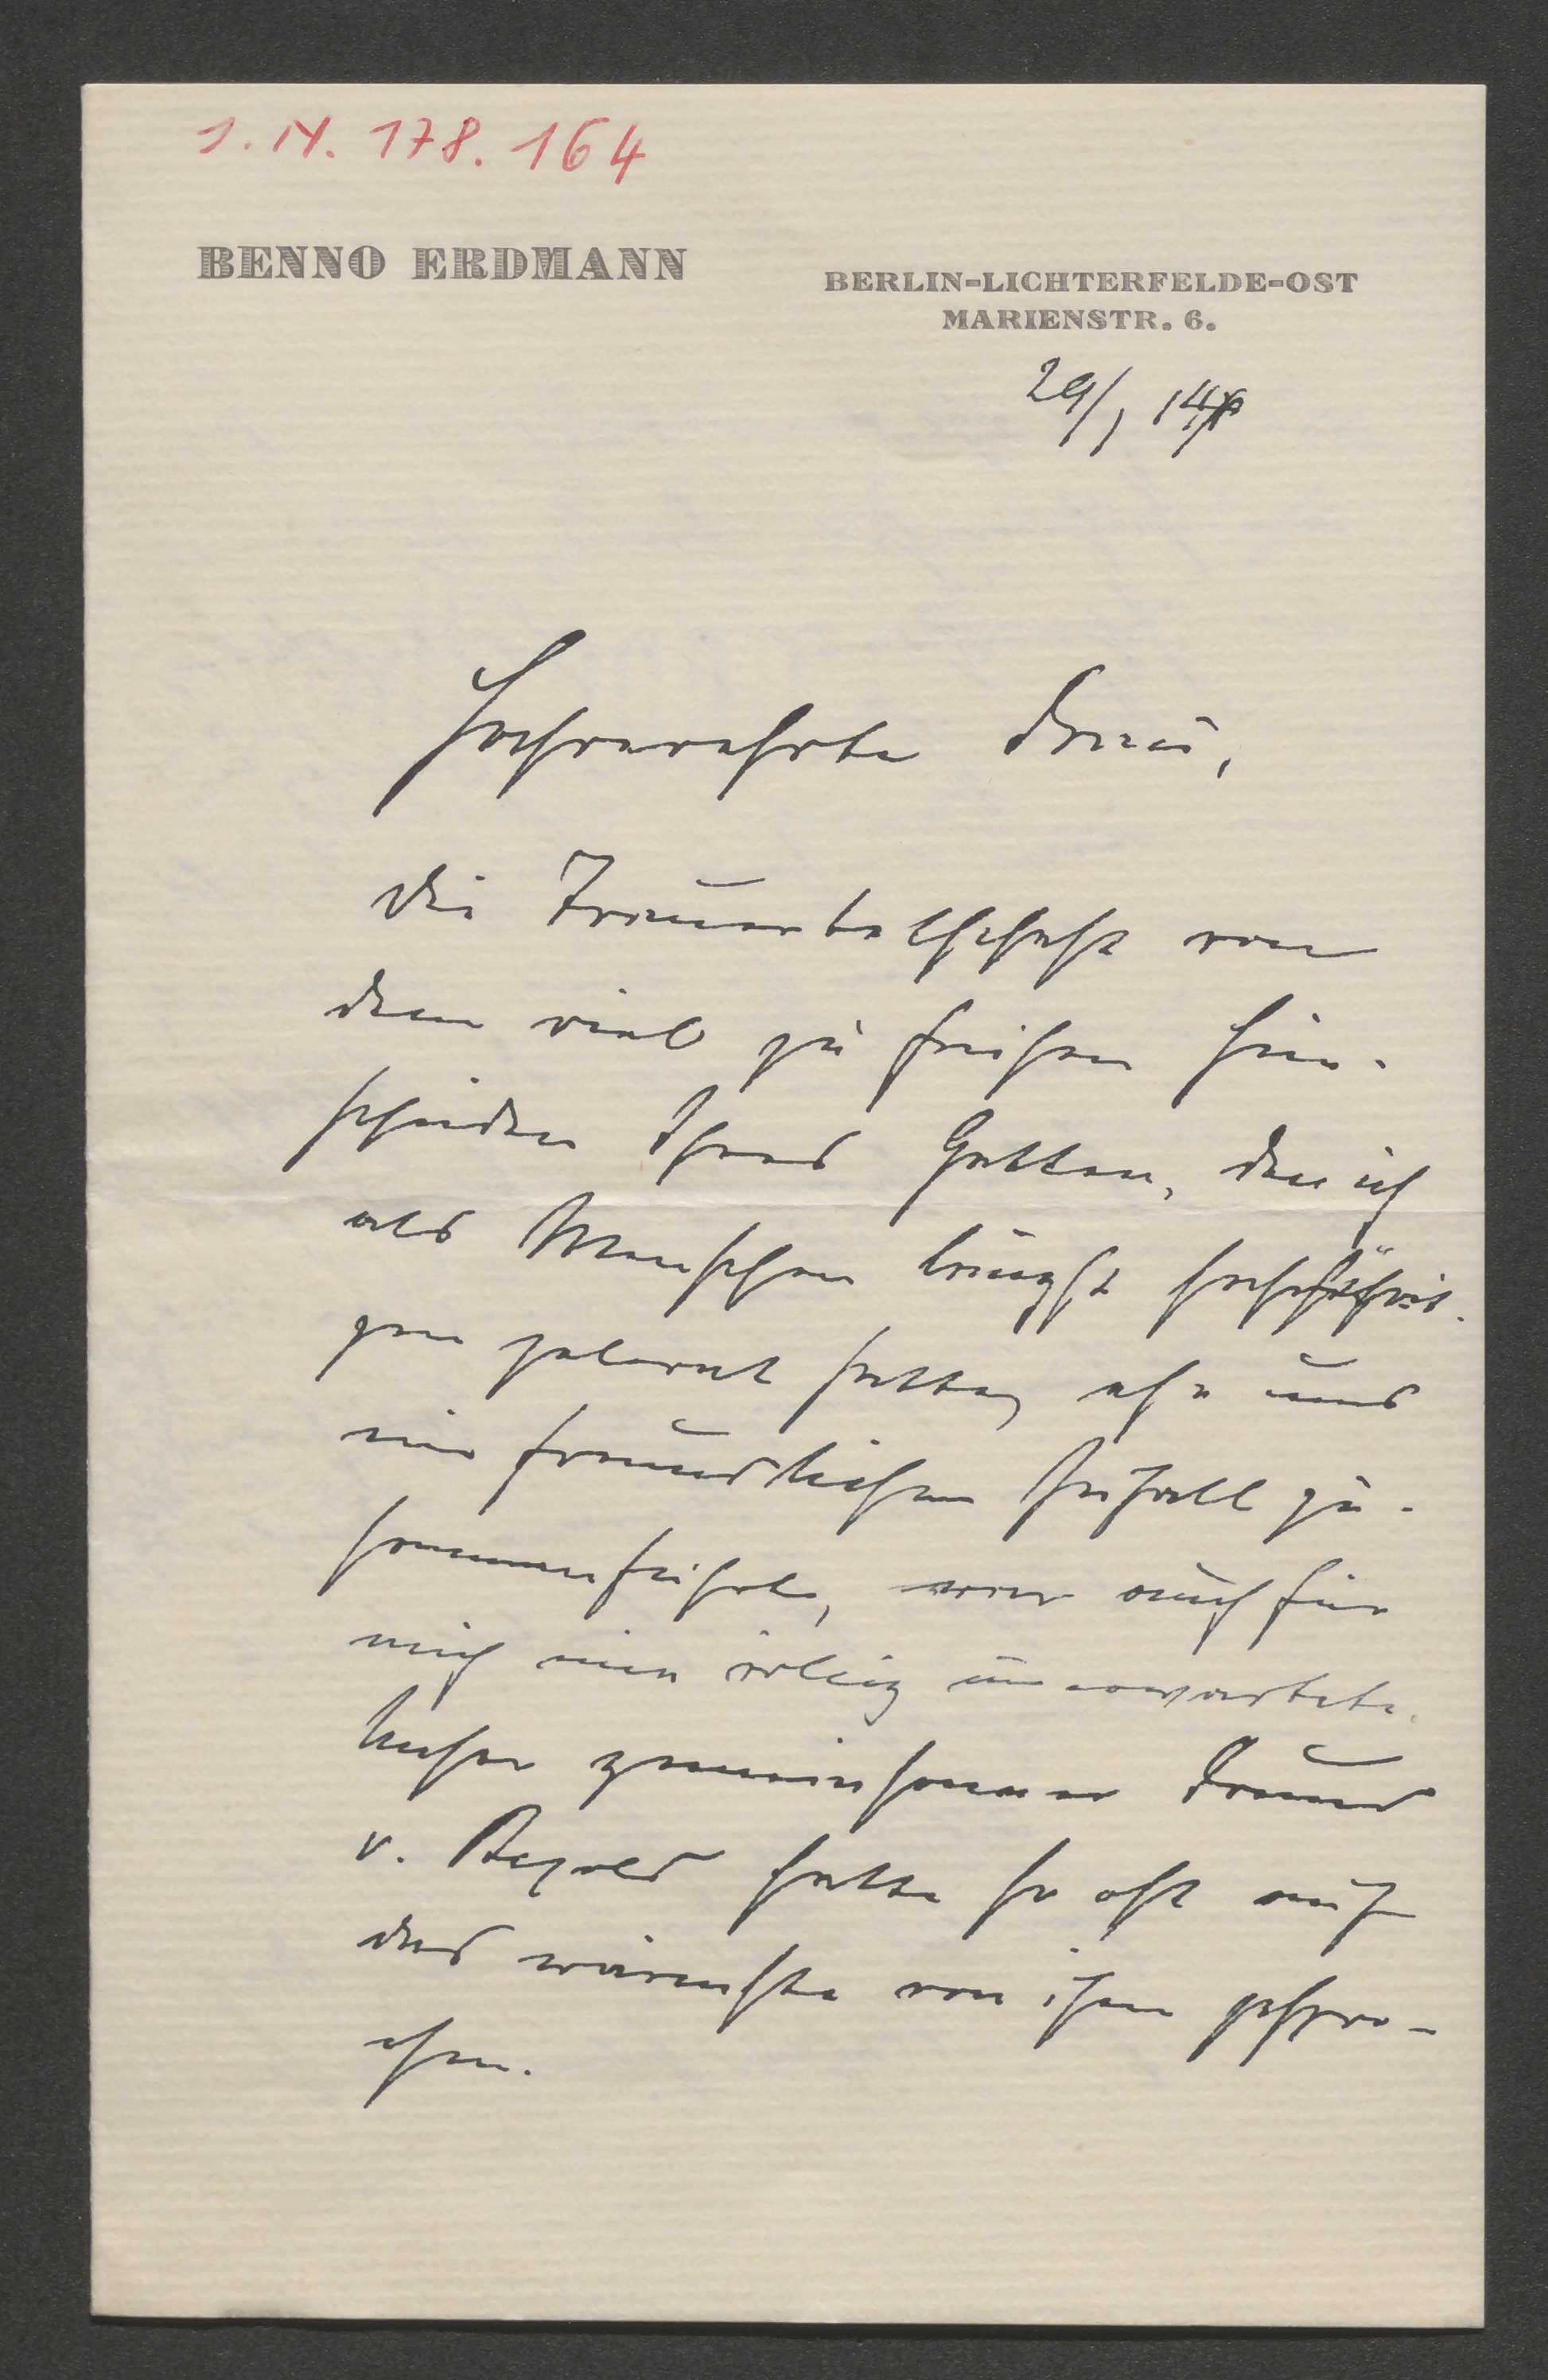 1. N. 178. 164
BENNO ERDMANN
BERLIN-LICHTERFELDE-OST
MARIENSTR. 6.
29/1 14
Hochverehrte Frau,
die Trauerbotschaft von
dem viel zu frühen Hin-
scheiden Ihres Gatten, den ich
als Menschen längst hochschätz-
gen gelernt hatte, ehe uns
ein freundlicher Zufall zu-
sammenführte, war auch für
mich eine völlig unerwartete.
Unser gemeinsamer Freund
v. Bezold hatte so oft auf
das wärmste von ihm gespro-
chen.